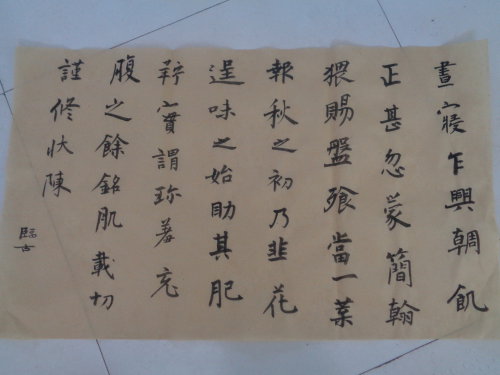 晝寢乍興輖飢
正甚忽蒙簡翰
猥賜盤飧當一葉
報秋之初乃韭花
逞味之始助其肥
羜實謂珍羞充
腹之餘銘肌載切
謹修狀陳
臨古